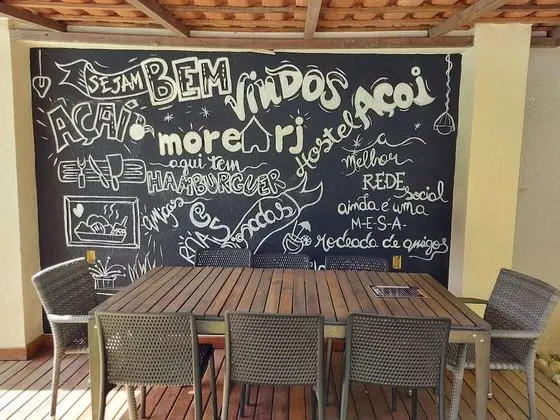 SEJAM BEM VINDOS
AÇAÍ
more rj
Hostel AÇOI
aqui tem
HAMBURGUER
amigos
a
Melhor
REDE
social
ainda é uma
M-E-S-A-
Rodeada de amigos